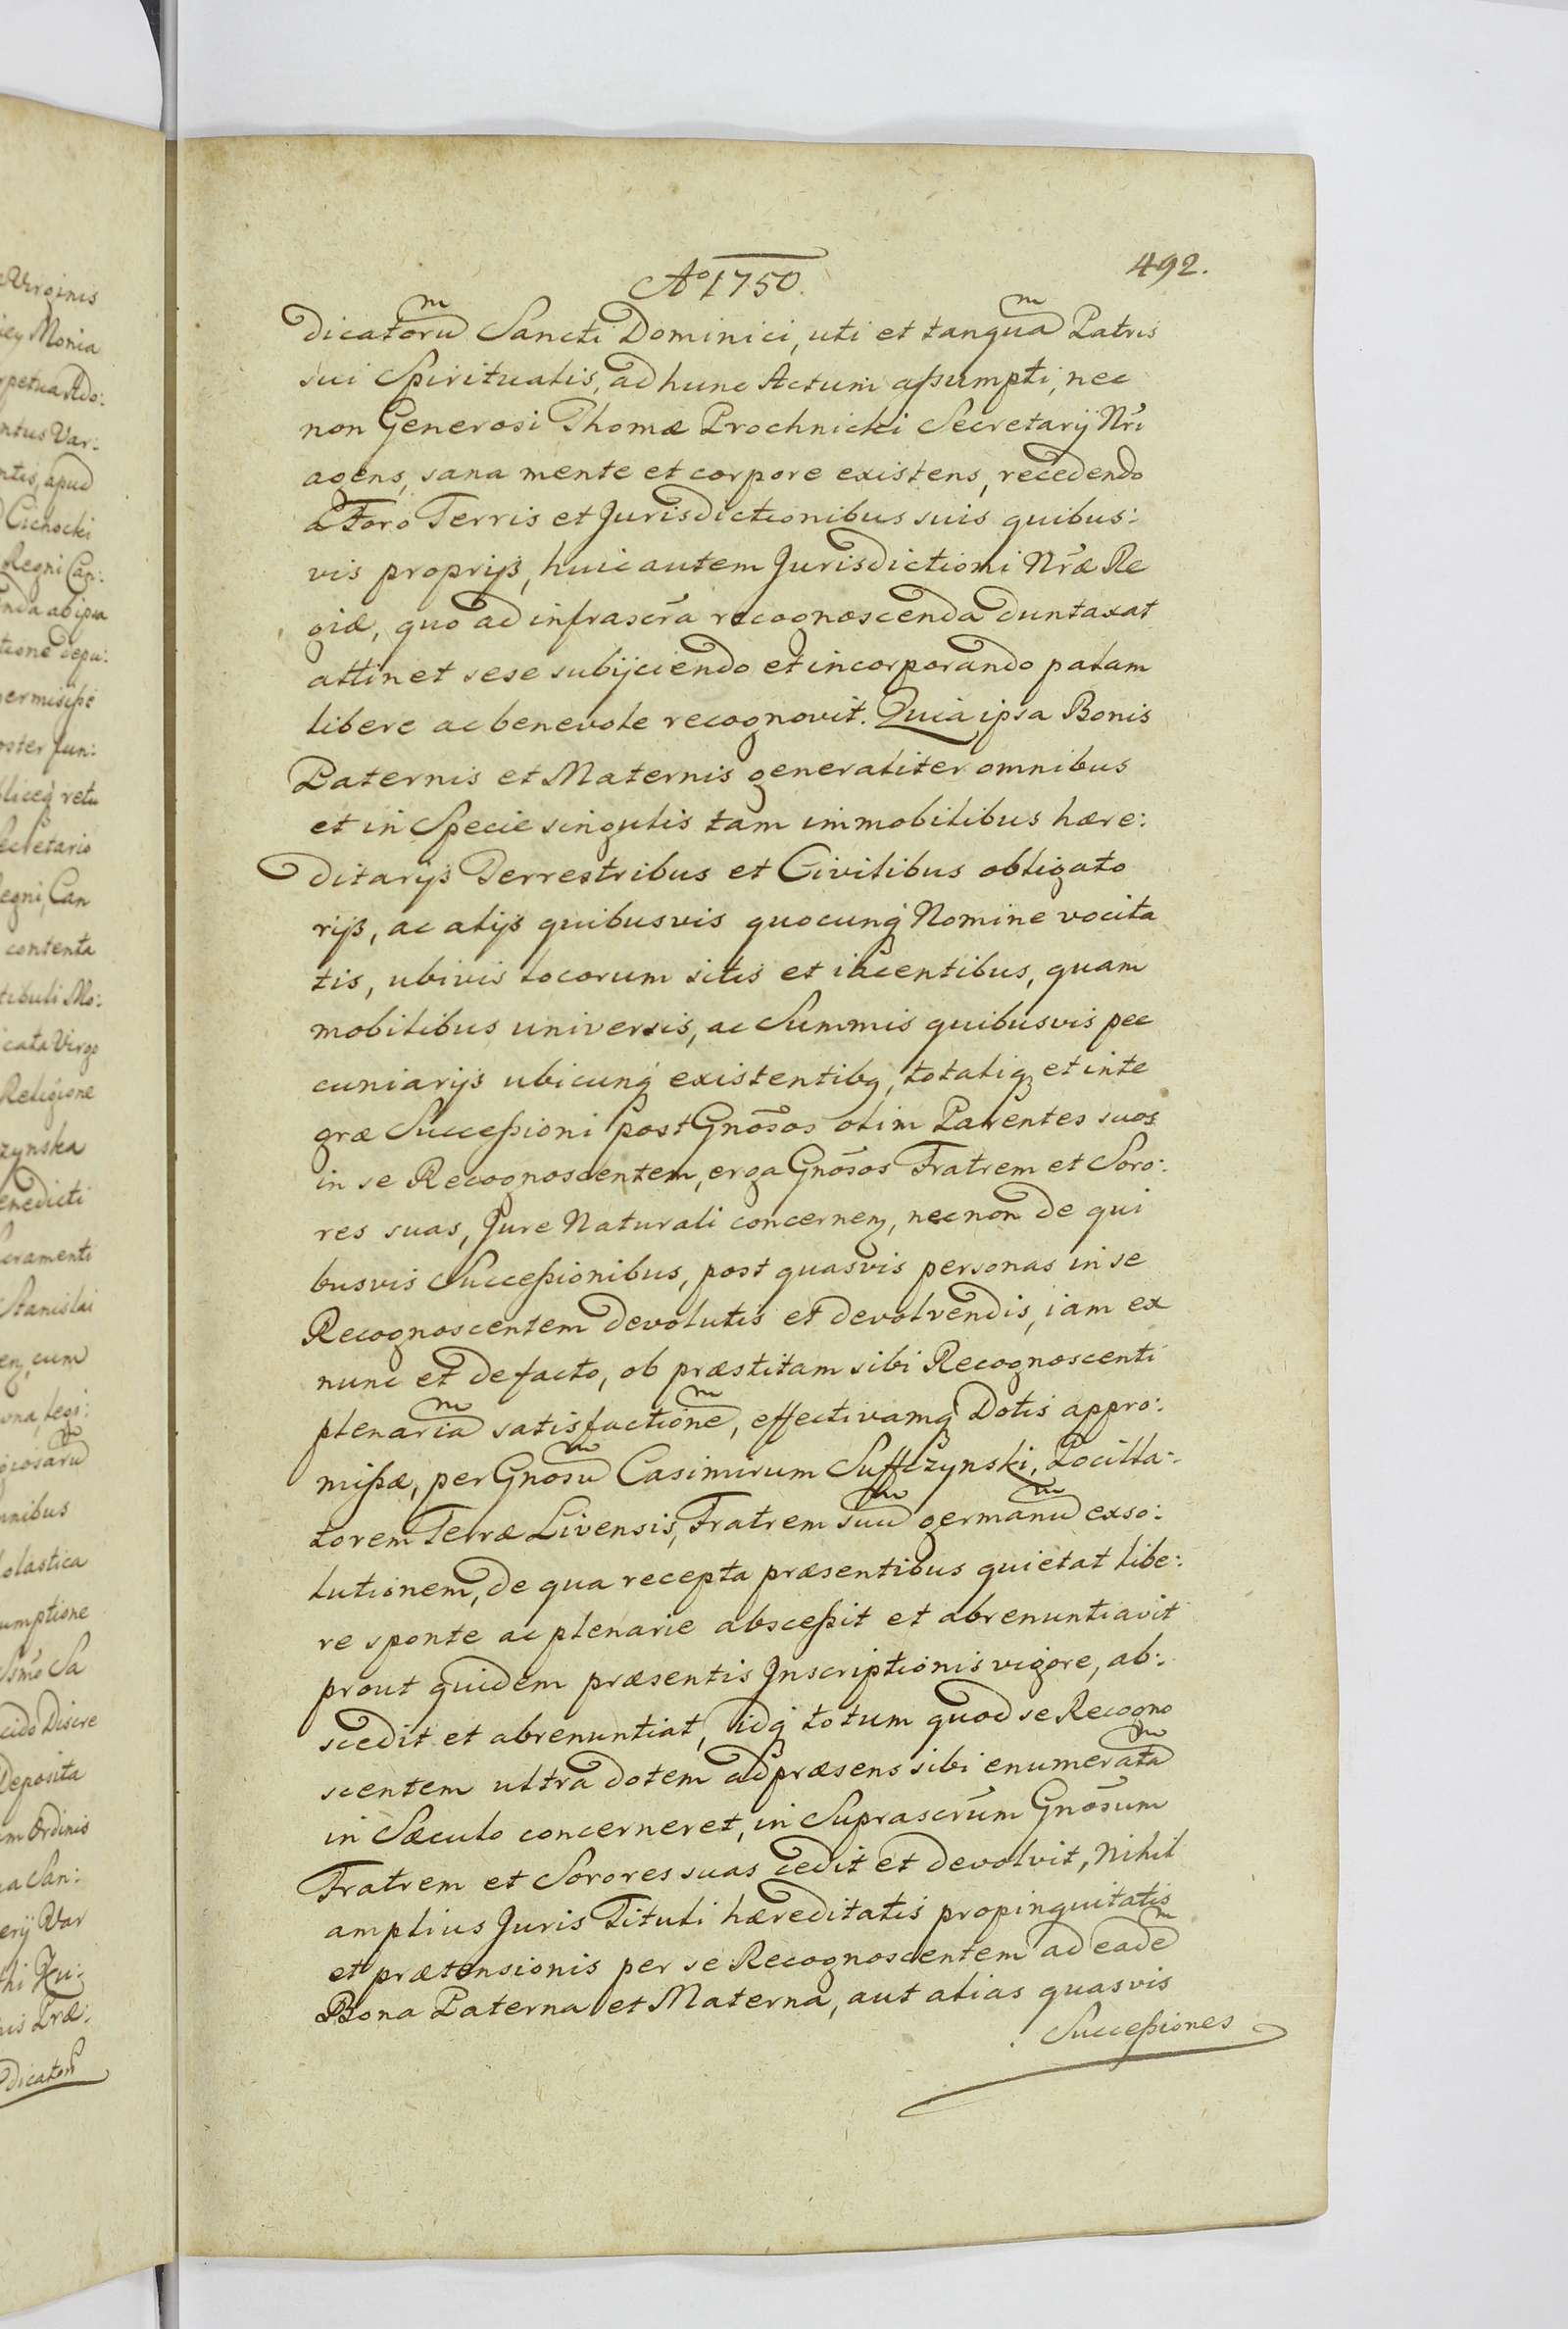 Aº 1750.
492.
Dicatorum Sancti Dominici, uti et tanquam Patris
sui Spiritualis, ad hunc Actum assumpti, nec
non Generosi Thomæ Prochnicki Secretarij Nri
agens, sana mente et corpore existens, recedendo
a Foro Terris et Jurisdictionibus suis quibus:
vis proprijs, huic autem Jurisdictioni Nræ Re
giæ, quo ad infrascra recognoscenda duntaxat
attinet sese subijciendo et incorporando palam
libere ac benevole recognovit. Quia ipsa Bonis
Paternis et Maternis generaliter omnibus
et in Specie singulis tam immobilibus hære:
ditarijs Terrestribus et Civilibus obligato
rijs, ac alijs quibusvis quocunq Nomine vocita
tis, ubivis locorum sitis et iacentibus, quam
mobilibus universis, ac Summis quibusvis pec
cuniarijs ubicunq existentibq, totaliq et inte
græ Successioni post Gnosos olim Parentes suos
in se Recognoscentem, erga Gnosos Fratrem et Soro:
res suas, Jure Naturali concernen, necnon de qui
busvis Successionibus, post quasvis personas in se
Recognoscentem devolutis et devolvendis, iam ex
nunc et de facto, ob præstitam sibi Recognoscenti
plenariam satisfactionem, effectivamq Dotis appro:
missæ, per Gnosum Casimirum Suffczynski, Pocilla:
torem Terræ Livensis, Fratrem suum germanum exso:
lutionem, de qua recepta præsentibus quietat libe:
re sponte ac plenarie abscessit et abrenuntiavit
prout quidem præsentis Inscriptionis vigore, ab:
scedit et abrenuntiat, idq totum quod se Recogno
scentem ultra dotem ad præsens sibi enumeratam
in Sæculo concerneret, in Suprascrum Gnosum
Fratrem et Sorores suas cedit et devolvit, Nihil
amplius Juris Tituli hæreditatis propinquitatis
et prætensionis per se Recognoscentem ad eadem
Bona Paterna et Materna, aut alias quasvis
Successiones